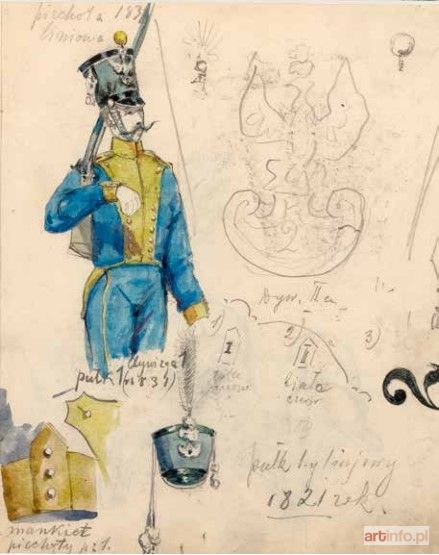 piechota 1831
liniowa
Dyw. II
1)
2)
3)
I
II
biała
dywizja 1
pułk 1 (1831)
pułk 1-y linjowy
1821 rok.
mankiet
piechoty p. 1.
artinfo.pl